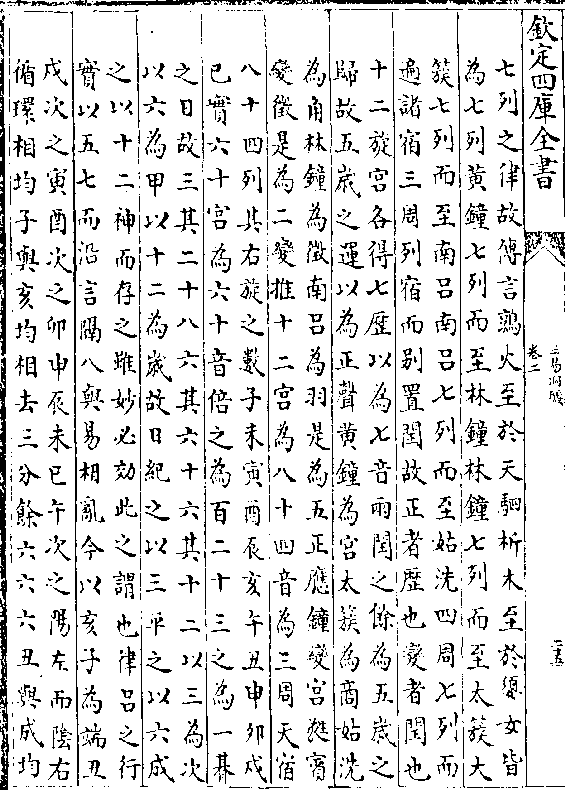 欽定四庫全書
三易洞璣
卷二
二五
七列之律故傳言鶉火至於天駟析木至於婺女皆
為七列黃鐘七列而至林鐘林鐘七列而至太簇太
簇七列而至南呂南呂七列而至姑洗四周七列而
遍諸宿三周列宿而别置閏故正者歷也變者閏也
十二旋宮各得七歷以為七音兩閏之餘為五歲之
歸故五歲之運以為正聲黃鐘為宮太簇為商姑洗
為角林鐘為徵南呂為羽是為五正應鐘變宮蕤賓
變徵是為二變推十二宮為八十四音為三周天宿
八十四列其右旋之數子未寅酉辰亥午丑申卯戌
已實六十宮為六十音倍之為百二十三之為一朞
之日故三其二十八六其六十六其十二以三為次
以六為甲以十二為歲故日紀之以三平之以六成
之以十二神而存之雖妙必効此之謂也律呂之行
實以五七而沿言隔八與易相亂今以亥子為端丑
戌次之寅酉次之卯申辰未已午次之陽左而陰右
循環相均子與亥均相去三分餘六六六丑與戌均